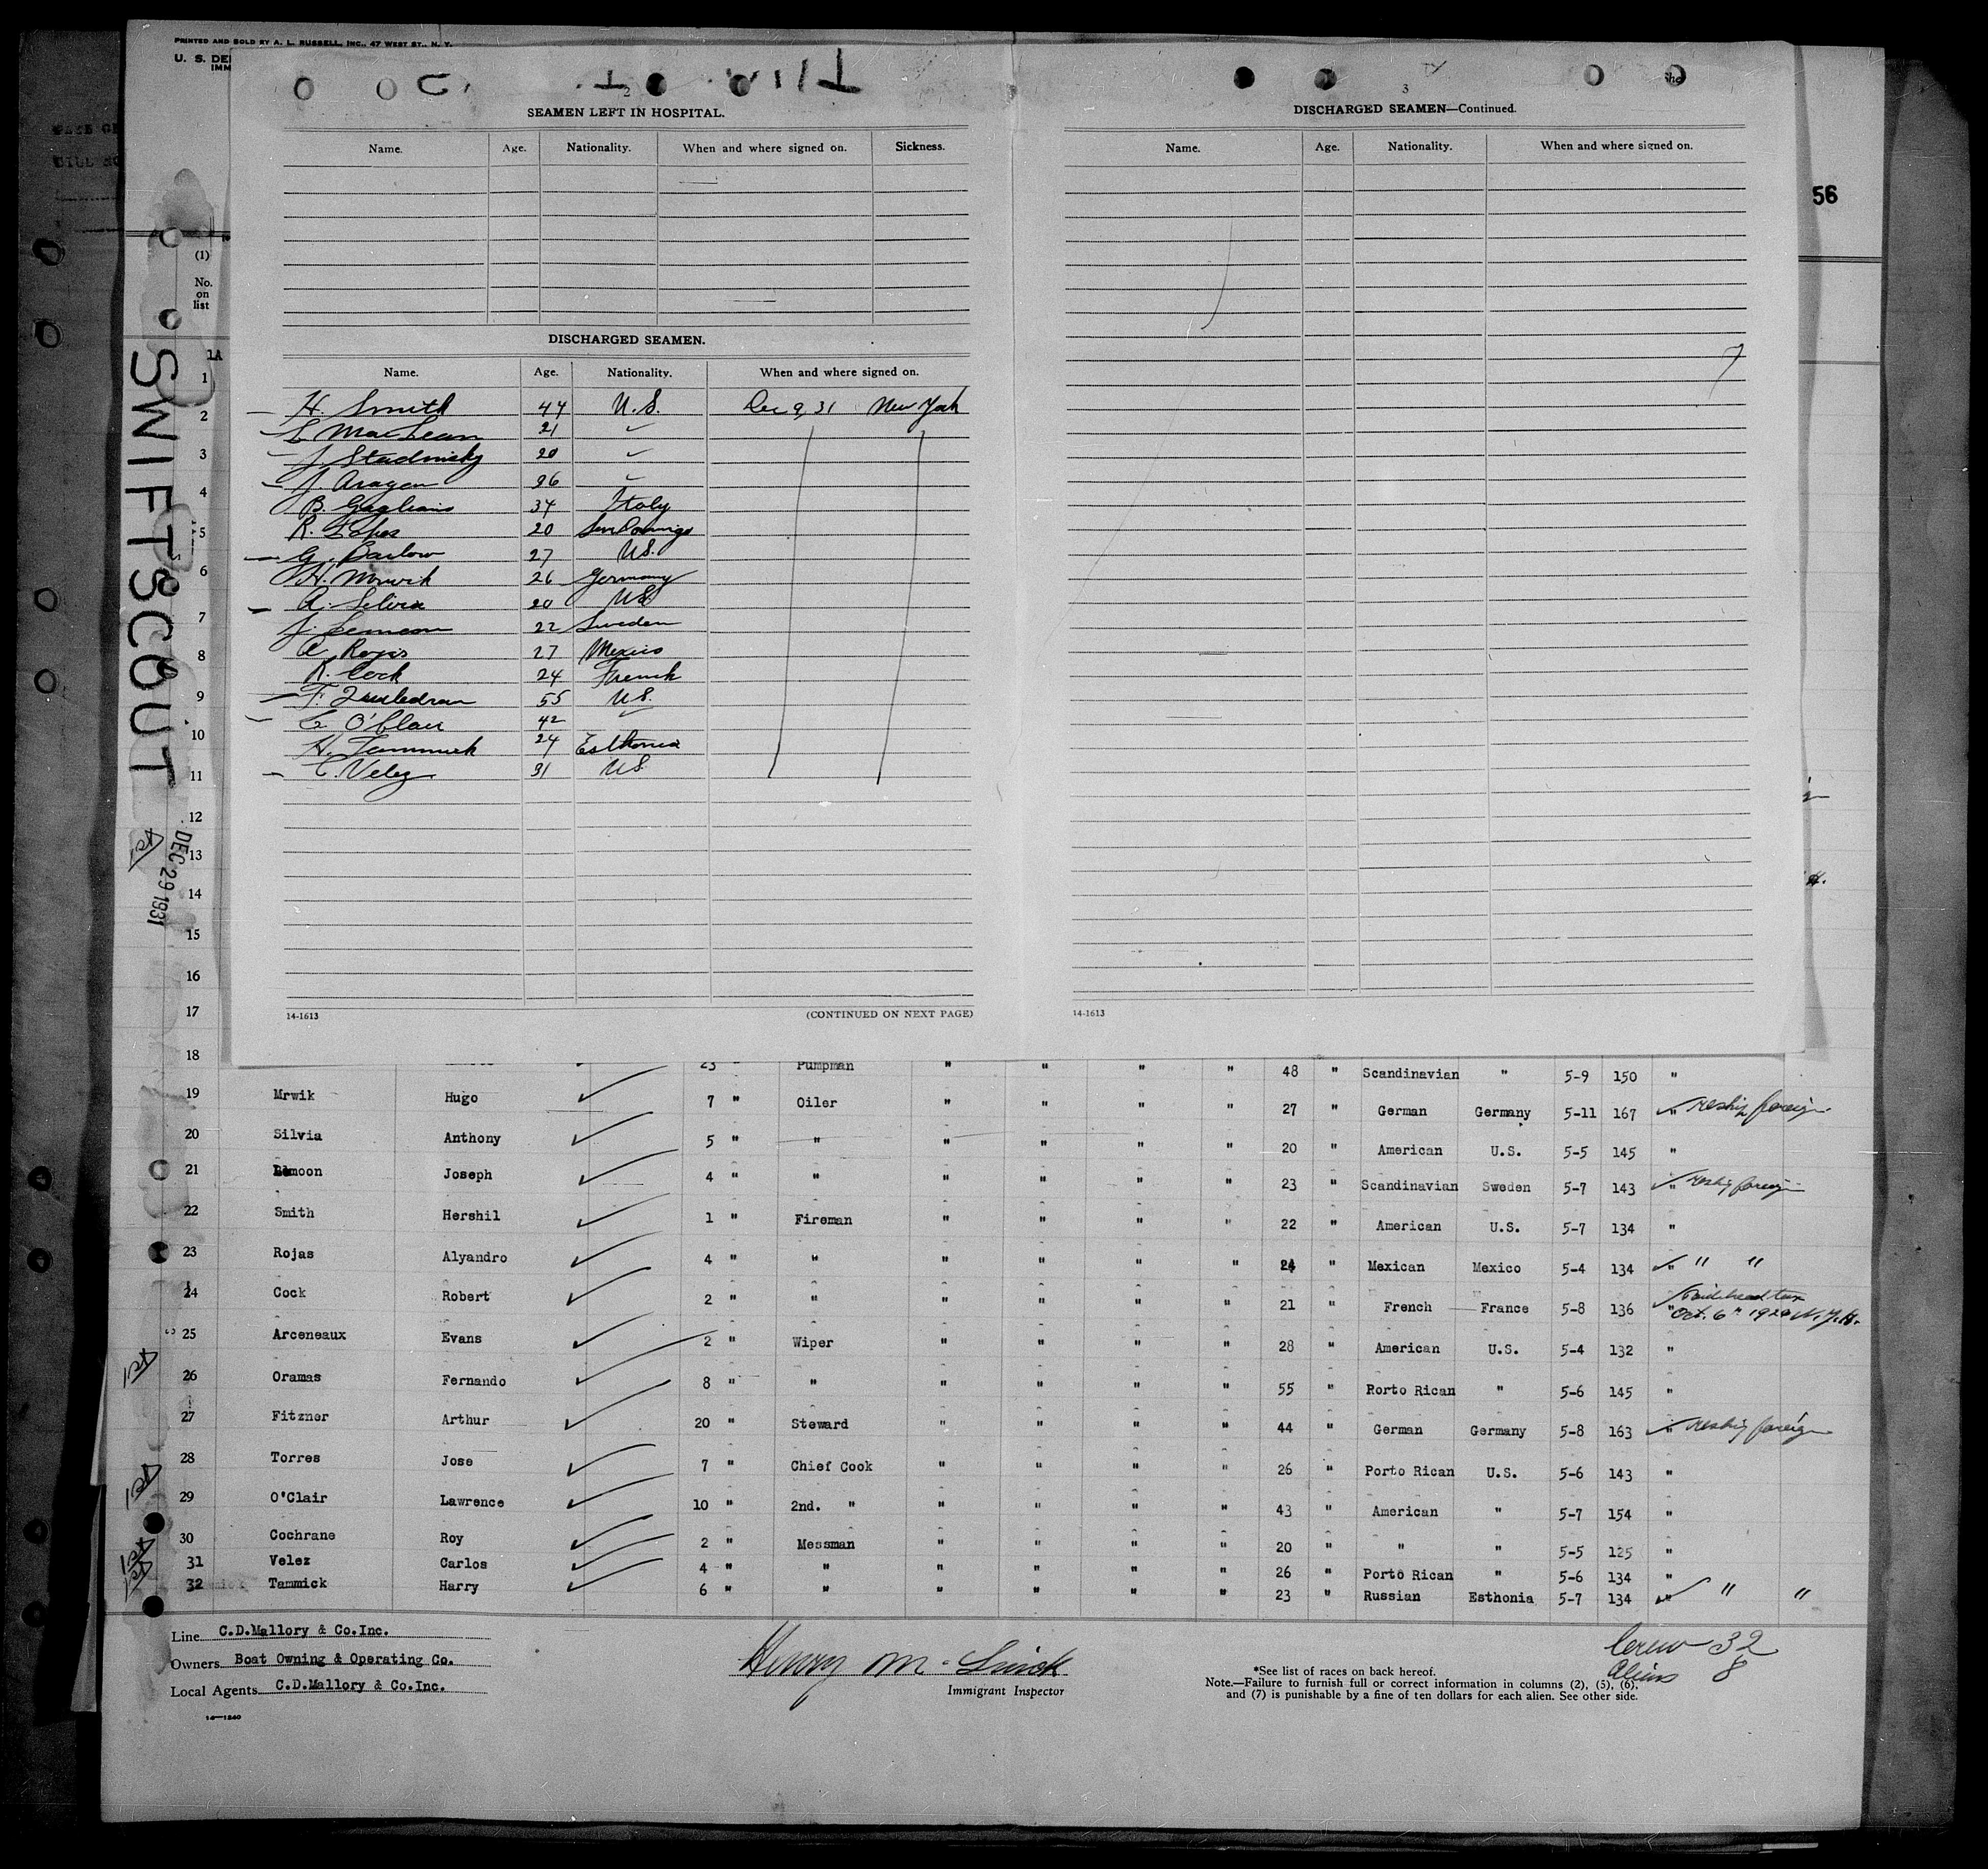 PRINTED AND SOLD BY A. L. RUSSELL, INC., 47 WEST ST., N. Y.
U. S. DE
IMM
56
(1)
No.
on
list
SWIFTSCOUT
DEC 29 1931
1A
1
2
3
4
5
6
7
8
9
10
11
12
13
14
15
16
17
2
SEAMEN LEFT IN HOSPITAL.
Name. Age. Nationality. When and where signed on. Sickness.
DISCHARGED SEAMEN.
Name. Age. Nationality. When and where signed on.
H. Smith 44 U.S. Dec 9, 31 New York
L MacLean 21 "
J. Stadnisky 20 "
J. Aragon 26 "
B. Gagliano 34 Italy
R. Lopes 20 San Domingo
G. Barlow 27 U.S.
H. Mrwik 26 Germany
A. Silvia 20 U.S.
J. Lemoon 22 Sweden
A. Rojas 27 Mexico
R. Cock 24 French
F. 55 U.S.
O'Clair 42 "
H. Tammick 24 Esthonia
C. Velez 31 U.S.
14-1613 (CONTINUED ON NEXT PAGE)
3
DISCHARGED SEAMEN—Continued.
Name. Age. Nationality. When and where signed on.
14-1613
18 23 " Pumpman " " " " 48 " Scandinavian " 5-9 150 "
19 Mrwik Hugo 7 " Oiler " " " " 27 " German Germany 5-11 167 " reship foreign
20 Silvia Anthony 5 " " " " " " 20 " American U.S. 5-5 145 "
21 Lemoon Joseph 4 " " " " " " 23 " Scandinavian Sweden 5-7 143 " reship foreign
22 Smith Hershil 1 " Fireman " " " " 22 " American U.S. 5-7 134 "
23 Rojas Alyandro 4 " " " " " " 24 " Mexican Mexico 5-4 134 " " "
24 Cock Robert 2 " " " " " " 21 " French France 5-8 136 " Paid head tax
Oct. 6th 1920 N.Y.
25 Arceneaux Evans 2 " Wiper " " " " 28 " American U.S. 5-4 132 "
26 Oramas Fernando 8 " " " " " " 55 " Rorto Rican " 5-6 145 "
27 Fitzner Arthur 20 " Steward " " " " 44 " German Germany 5-8 163 " reship foreign
28 Torres Jose 7 " Chief Cook " " " " 26 " Porto Rican U.S. 5-6 143 "
29 O'Clair Lawrence 10 " 2nd. " " " " " 43 " American " 5-7 154 "
30 Cochrane Roy 2 " Messman " " " " 20 " " " 5-5 125 "
31 Velez Carlos 4 " " " " " " 26 " Porto Rican " 5-6 134 "
32 Tammick Harry 6 " " " " " " 23 " Russian Esthonia 5-7 134 " " "
Line C.D.Mallory & Co.Inc.
Owners Boat Owning & Operating Co.
Local Agents C.D.Mallory & Co.Inc.
14—1240
Henry M.
Immigrant Inspector
Crew 32
Aliens 8
*See list of races on back hereof.
Note.—Failure to furnish full or correct information in columns (2), (5), (6),
and (7) is punishable by a fine of ten dollars for each alien. See other side.